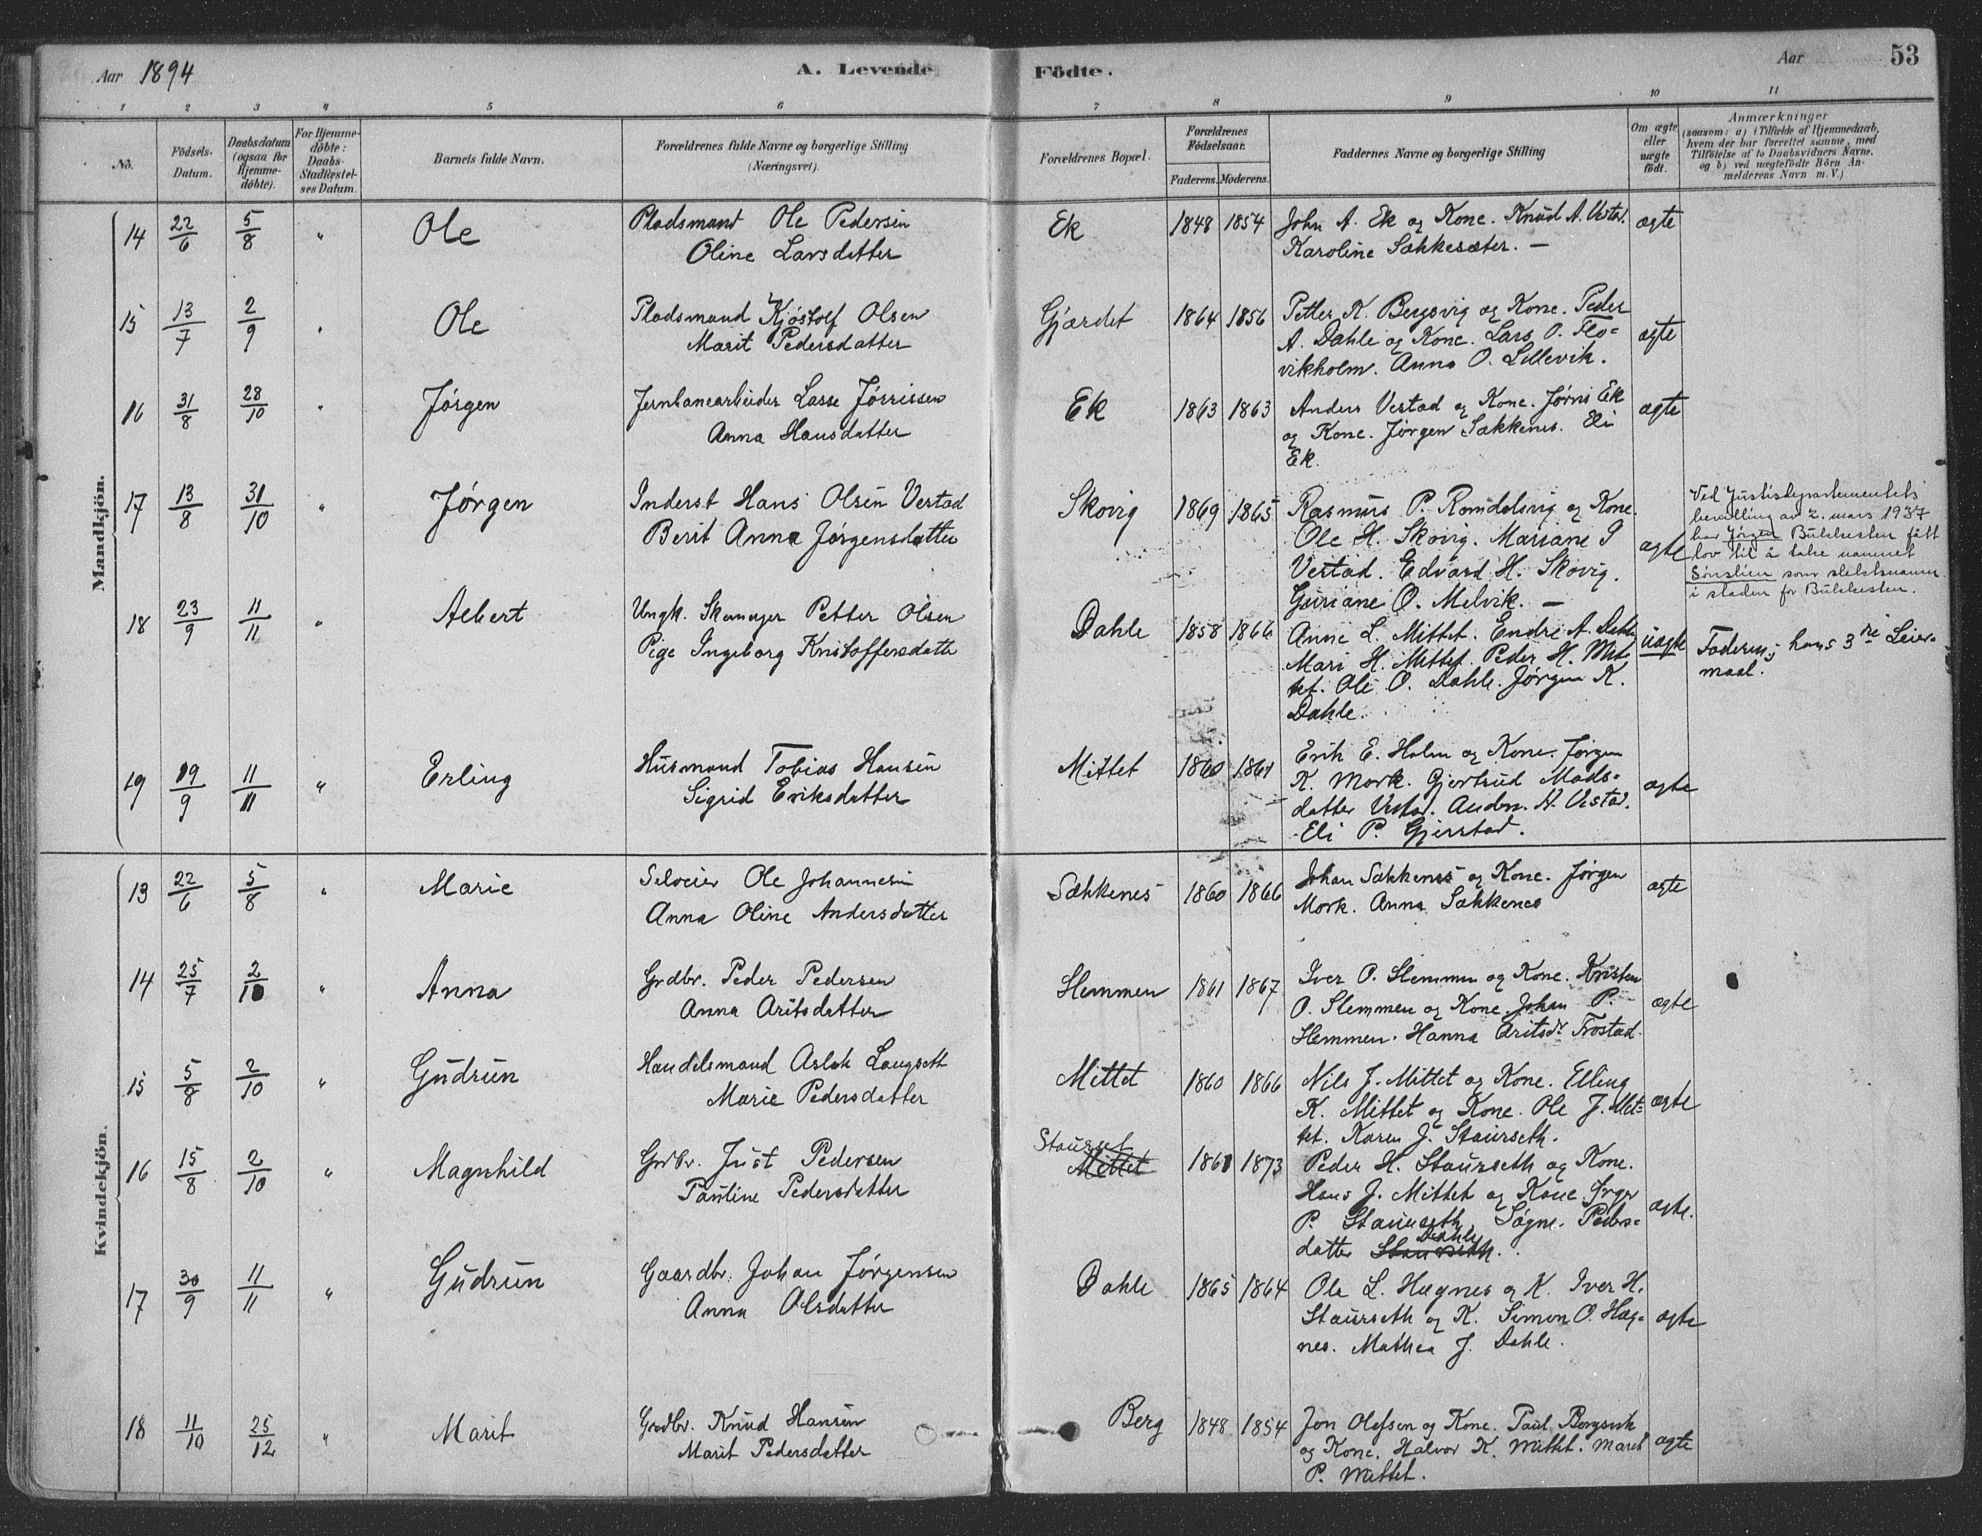 Aar 1894
A. Levende
Födte.
Aar
53
1 2 3 4 5 6 7 8 9 10 11
No.
Födsels-
Datum.
Daabsdatum
(ogsaa for
Hjemme-
döbte).
For Hjemme-
döbte:
Daabs-
Stadfæstel-
ses Datum.
Barnets fulde Navn.
Forældrenes fulde Navne og borgerlige Stilling
(Næringsvei).
Forældrenes Bopæl.
Forældrenes
Födselsaar.
Faderens. Moderens.
Faddernes Navne og borgerlige Stilling
Om ægte
eller
uægte
födt.
Anmærkninger
(saasom: a) i Tilfælde af Hjemmedaab,
hvem der har forrettet samme, med
Tilföielse af to Daabsvidners Navne,
og b) ved uægtefödte Börn An-
melderens Navn m. V.)
Mandkjön.
14 22/6 5/8 " Ole Pladsmand Ole Pedersen Ek 1848 1854 John A. Ek og Kone. Knud A. Vestad. ægte
Oline Larsdatter Karoline Sækkesæter. —
15 13/7 2/9 " Ole Pladsmand Kjøstolf Olsen Gjærdet 1864 1856 Petter K. Bergsvig og Kone. Peder ægte
Marit Pedersdatter A. Dahle og Kone. Lars O. Flo-
vikholm. Anna O. Lillevik.
16 31/8 28/10 " Jørgen Jernbanearbeider Lasse Jørnssen Ek 1863 1863 Anders Vestad og Kone. Jørn Ek ægte
Anna Hansdatter og Kone. Jørgen Sækkenes. Eli
Ek.
17 13/8 31/10 " Jørgen Inderst Hans Olsen Vestad Skovig 1869 1865 Rasmus P. Romdalsvig og Kone. ægte
Berit Anna Jørgensdatter Ole H. Skovig. Mariane J
Vestad. Edvard H. Skovig.
Guriane O. Melvik. —
Ved Justisdepartementets
bevilling av 2. mars 1937
har Jørgen Bulchesten fått
lov til å take namnet
Sønslien som slektsnamn
i staden for Bulchesten.
18 23/9 11/11 " Albert Ungk. Skomager Petter Olsen Dahle 1858 1866 Anne L. Mittet. Endre A. Dahle uægte Faderens hans 3die Leier-
Pige Ingeborg Kristoffersdatter Mari H. Mittet. Peder H. Mit- maal.
tet. Ole O. Dahle. Jørgen K.
Dahle.
19 19/9 11/11 " Erling Husmand Tobias Hansen Mittet 1860 1861 Erik E. Holm og Kone. Jørgen ægte
Sigrid Eriksdatter K. Mork. Gjertrud Mads-
datter Vestad. Anders A. Vestad.
Eli P. Gjerstad.
Kvindekjön.
13 22/6 5/8 " Marie Seloeier Ole Johannesen Sækkenes 1860 1866 Johan Sækkenes og Kone. Jørgen ægte
Anna Oline Andersdatter Mork. Anna Sækkenes
14 25/7 2/10 " Anna Grdbr. Peder Pedersen Slemmen 1861 1867 Iver O. Slemmen og Kone. Kristen ægte
Anna Aritsdatter O. Slemmen og Kone. Johan P.
Slemmen. Hanna Aritsdr Frostad.
15 5/8 2/10 " Gudrun Handelsmand Aslak Langseth Mittet 1860 1866 Nils J. Mittet og Kone. Elling ægte
Marie Pedersdatter K. Mittet og Kone. Ole J. Mit-
tet. Karen J. Staurseth.
16 15/8 2/10 " Magnhild Grdbr. Just Pedersen Staurset Mittet 1861 1873 Peder H. Staurseth og Kone. ægte.
Pauline Pedersdatter Hans J. Mittet og Kone. Inger
P. Staurseth. Søgne. Peders-
datter Staurseth Dahle.
17 30/9 11/11 " Gudrun Gaardbr. Johan Jørgensen Dahle 1865 1864 Ole L. Hagnes og K. Iver H. ægte
Anna Olsdatter Staurseth og K. Simon O. Hag-
nes. Mathea J. Dahle.
18 11/10 25/12 " Marit Grdbr. Knud Hansen Berg 1848 1854 Jon Olefsen og Kone. Paul Bergsvik ægte
Marit Pedersdatter og Kone. Halvor K. Mittet. Marit
P. Mittet.